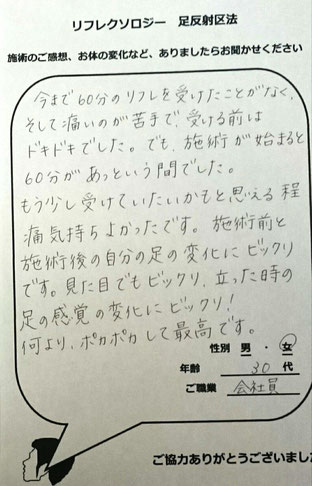 リフレクソロジー 足反射区法
施術のご感想、お体の変化など、ありましたらお聞かせください
今まで60分のリフレを受けたことがなく、
そして痛いのが苦手で、受ける前は
ドキドキでした。でも、施術が始まると
60分があっという間でした。
もう少し受けていたいかもと思える程
痛気持ちよかったです。施術前と
施術後の自分の足の変化にビックリ
です。見た目でもビックリ、立った時の
足の感覚の変化にビックリ!
何より、ポカポカして最高です。
性別 男・女
年齢 30代
ご職業 会社員
ご協力ありがとうございました